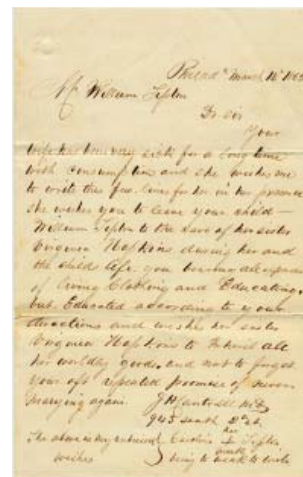 Philad.a March 14th 186
Mr William Tipton
Dr sir
Your
wife has been very sick for a long time
with consumption and she wishes me
to write this few lines for her in her presence
she wishes you to leave your child —
William Tipton to the care of her sister
Virginia Hopkins during her and
the child life. you bearing all expense
of living Clothing and Education,
but Educated according to your
directions and wishes her sister
Virginia Hopkins to Inherit all
her worldly goods. and not to forget
your oft repeated promise of never
marrying again. M.D.
945 south 2d st
her
The above is my entire Caroline + Tipton
wishes mark
being to weak to write